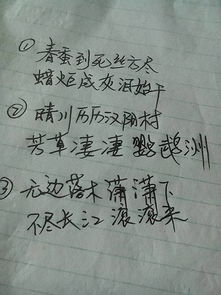 ① 春蚕到死丝方尽
蜡炬成灰泪始干
② 晴川历历汉阳村
芳草凄凄鹦鹅洲
③ 无边落木潇潇下
不尽长江滚滚来